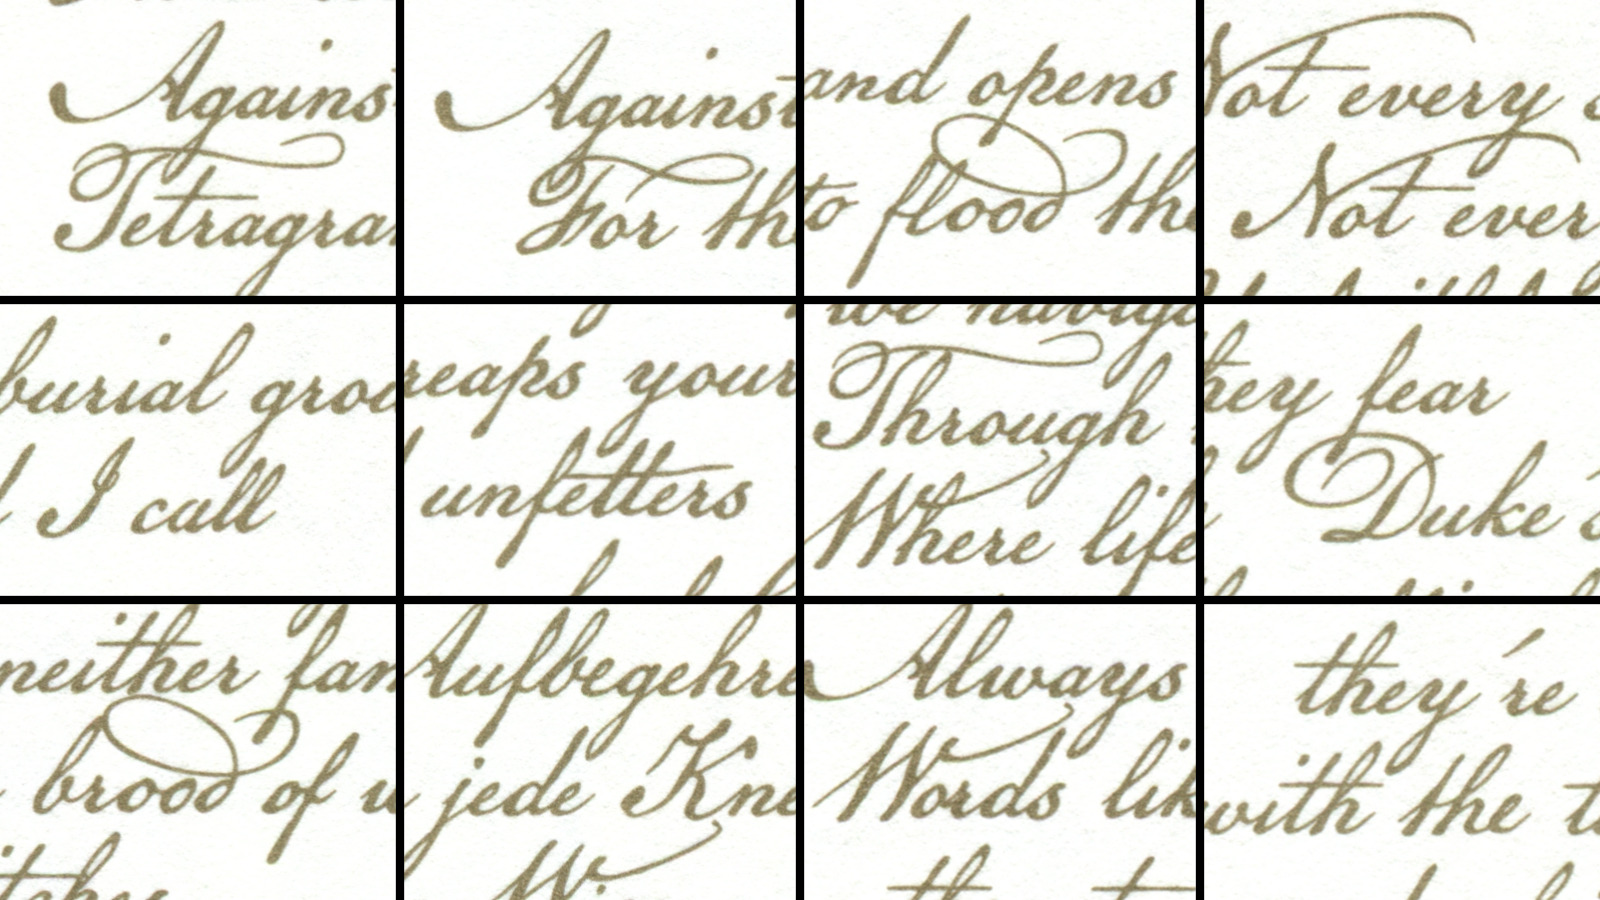 Against
Tetragra
Against
For th
and opens
to flood the
Not every
Not ever
burial grou
I call
reaps your
unfetters
we naviga
Through
Where life
they fear
Duke
neither fam
brood of u
Aufbegehre
jede Kne
W
Always
Words lik
they're
with the t